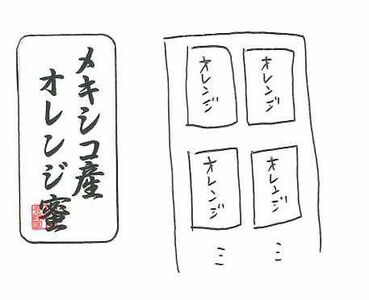 メキシコ産
オレンジ蜜
オレンジ
オレンジ
オレンジ
オレンジ
ミ
ミ